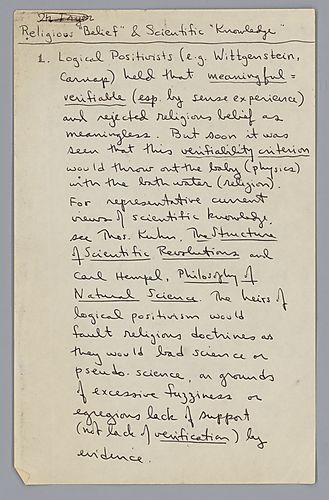 Religious "Belief" & Scientific "Knowledge"
1. Logical Positivists (e.g. Wittgenstein,
Carnap) held that meaningful =
verifiable (esp. by sense experience)
and rejected religious belief as
meaningless. But soon it was
seen that this verifiability criterion
would throw out the baby (physics)
with the bath water (religion).
For representative current
views of scientific knowledge,
see Thos. Kuhn, The Structure
of Scientific Revolutions and
Carl Hempel, Philosophy of
Natural Science. The heirs of
logical positivism would
fault religious doctrines as
they would bad science or
pseudo-science, on grounds
of excessive fuzziness or
egregious lack of support
(not lack of verification) by
evidence.